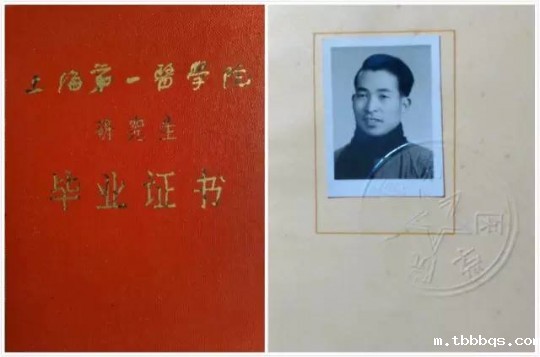 上海第一醫學院
研究生
毕业证书
m.tbbbqs.com